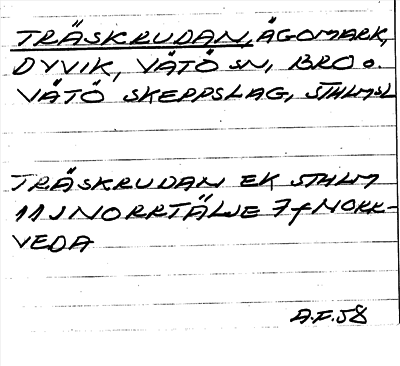 TRÄSKRUDAN, ÄGOMARK,
DYVIK, VÄTÖ SN, BRO O.
VÄTÖ SKEPPSLAG, STHLMSL
TRÄSKRUDAN EK STHLM
11 J NORRTÄLJE 7 f NORR-
VEDA
A.F. 58